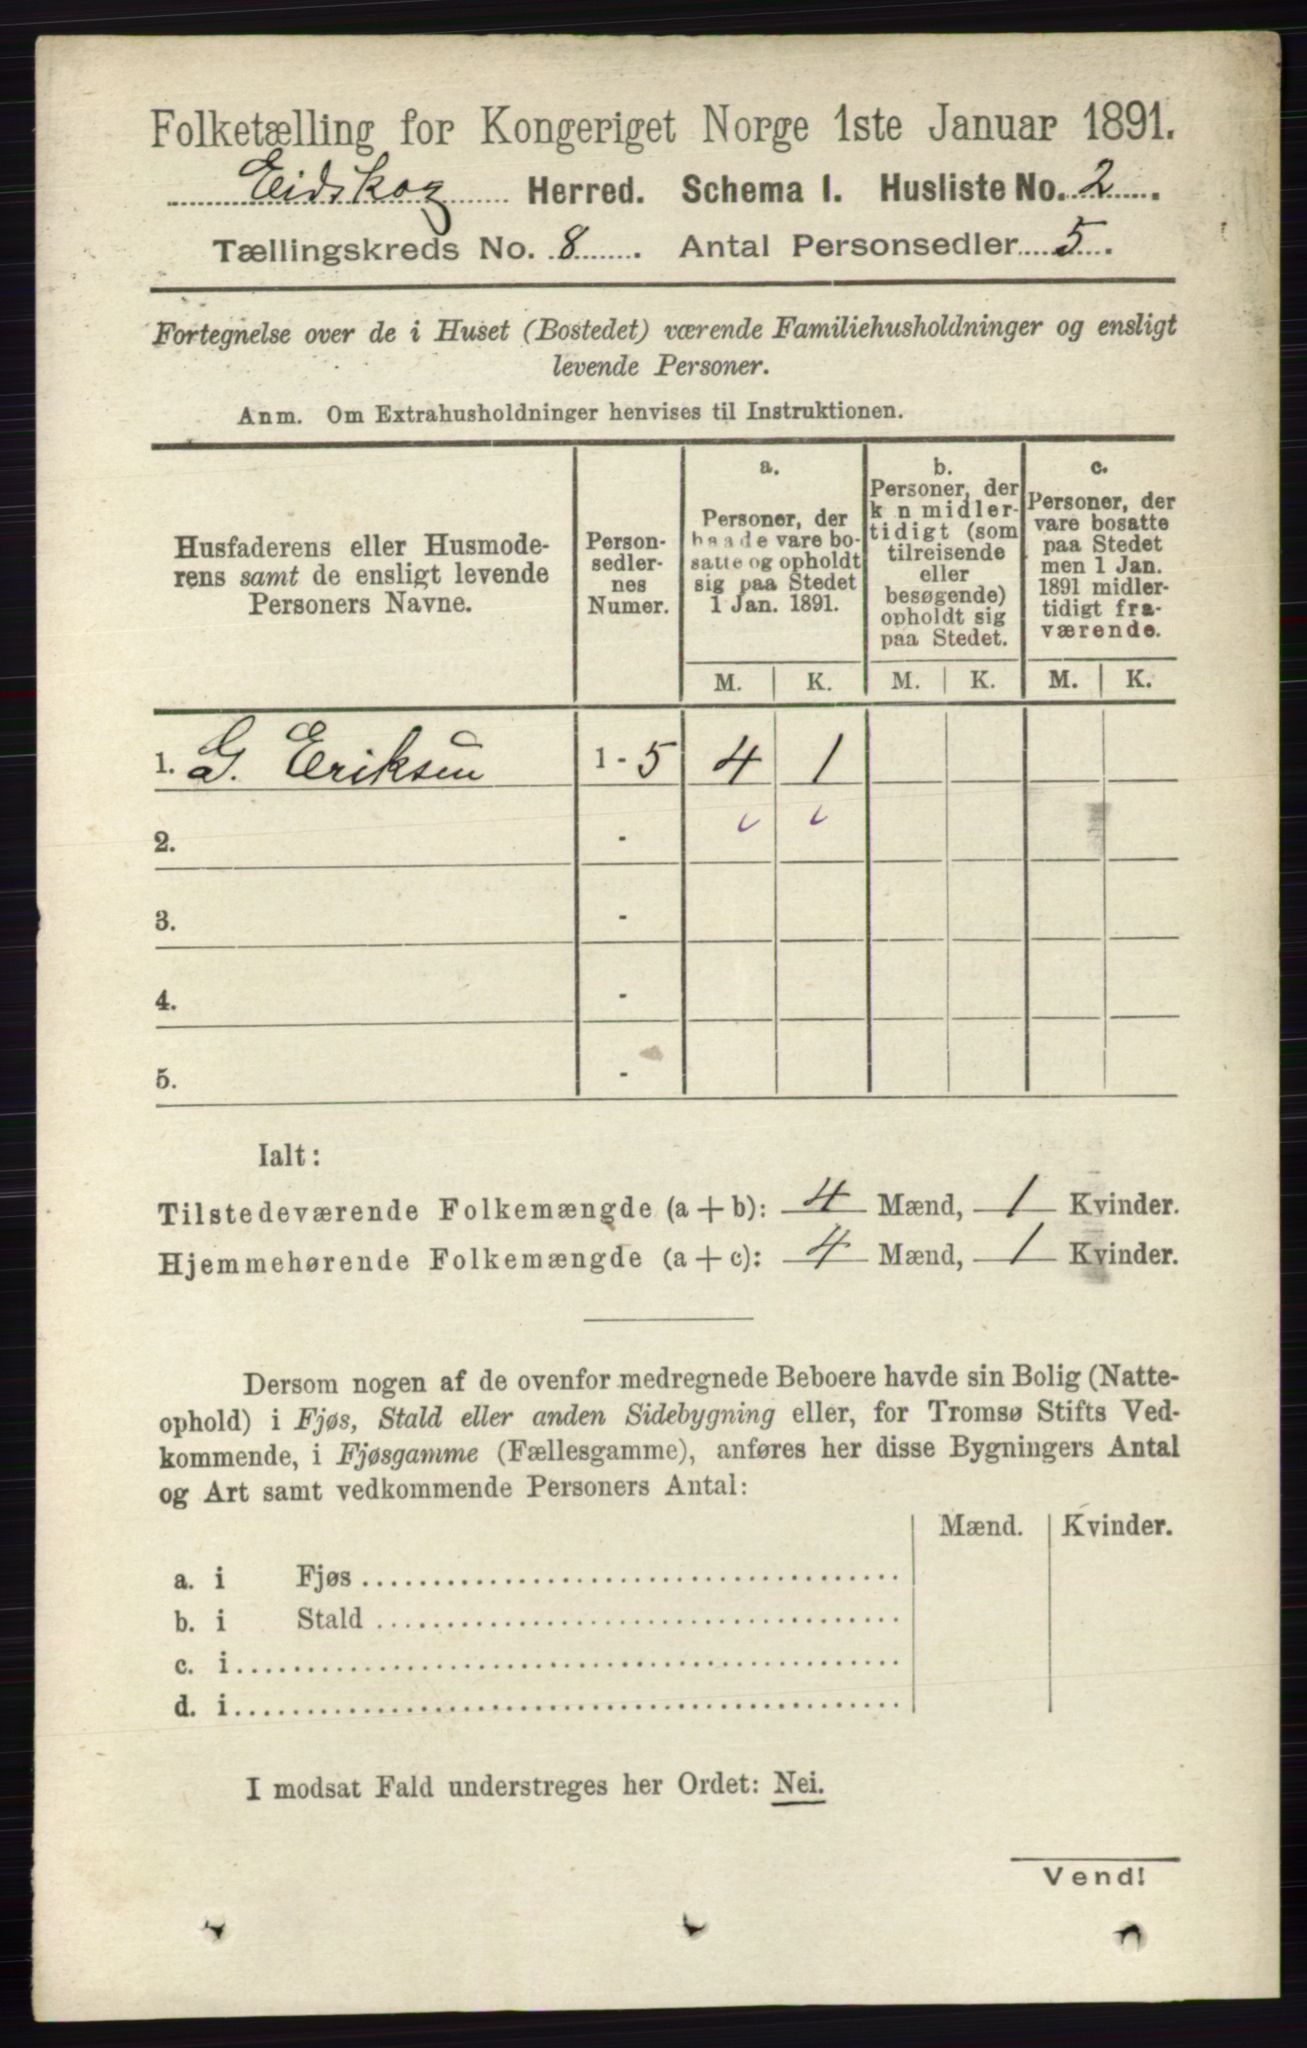 Folketælling for Kongeriget Norge 1ste Januar 1891.
Eidskog Herred. Schema 1. Husliste No. 2.
Tællingskreds No. 8. Antal Personsedler 5.
Fortegnelse over de i Huset (Bostedet) værende Familiehusholdninger og ensligt
levende Personer.
Anm. Om Extrahusholdninger henvises til Instruktionen.
Husfaderens eller Husmode-
rens samt de ensligt levende
Personers Navne.
Person-
sedler-
nes
Numer.
a.
Personer, der
baade vare bo-
satte og opholdt
sig paa Stedet
1 Jan. 1891.
b.
Personer, der
k n midler-
tidigt (som
tilreisende
eller
besøgende)
opholdt sig
paa Stedet.
c.
Personer, der
vare bosatte
paa Stedet
men 1 Jan.
1891 midler-
tidigt fra-
værende.
M. K. M. K. M. K.
1. G. Eriksen 1 - 5 4 1
2. -
3. -
4. -
5. -
Ialt:
Tilstedeværende Folkemængde (a + b): 4 Mænd, 1 Kvinder.
Hjemmehørende Folkemængde (a + c): 4 Mænd, 1 Kvinder.
Dersom nogen af de ovenfor medregnede Beboere havde sin Bolig (Natte-
ophold) i Fjøs, Stald eller anden Sidebygning eller, for Tromsø Stifts Ved-
kommende, i Fjøsgamme (Fællesgamme), anføres her disse Bygningers Antal
og Art samt vedkommende Personers Antal:
Mænd. Kvinder.
a. i Fjøs
b. i Stald
c. i
d. i
I modsat Fald understreges her Ordet: Nei.
Vend!